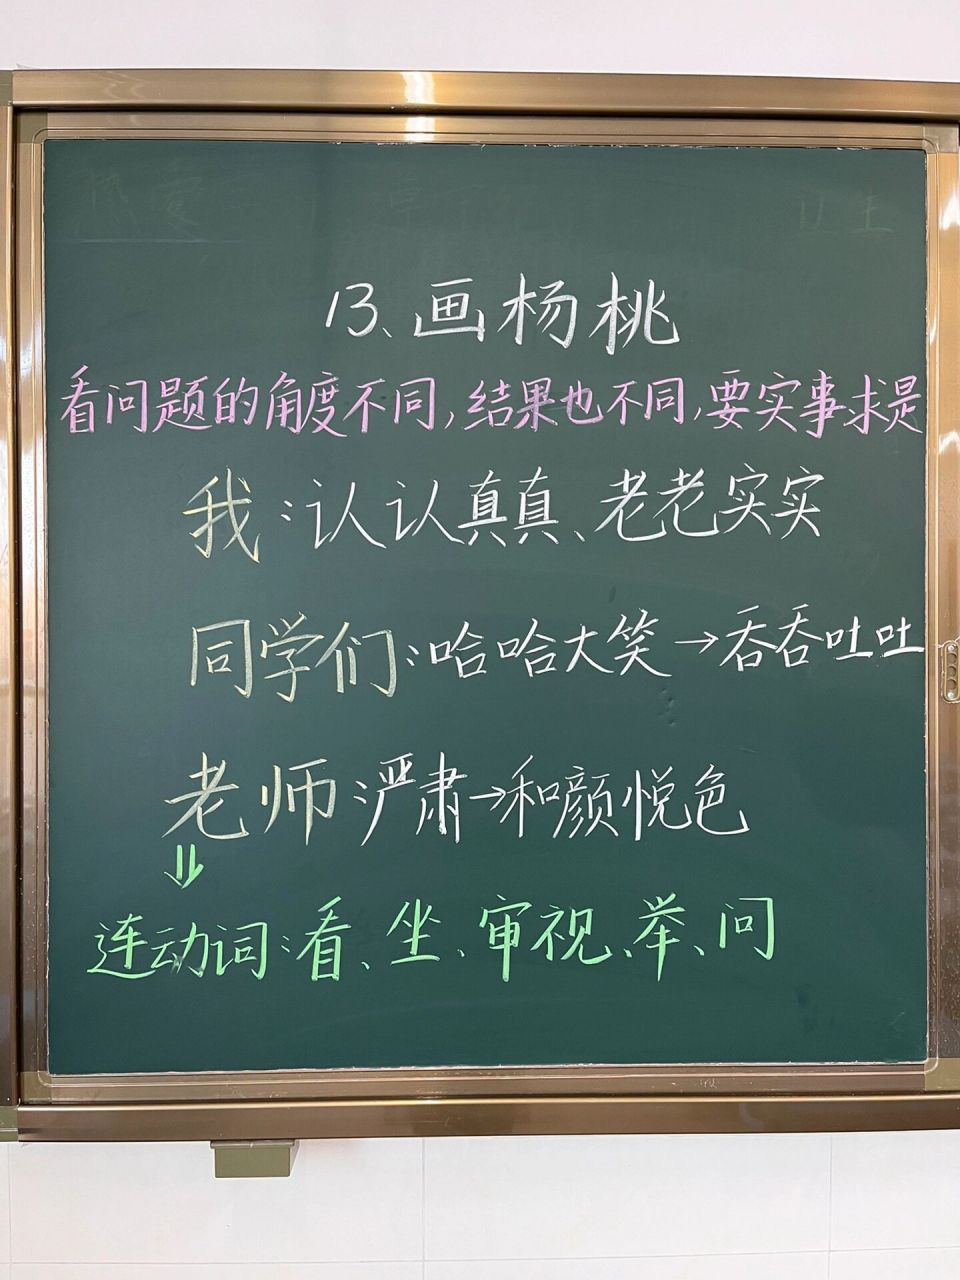 13、画杨桃
看问题的角度不同,结果也不同,要实事求是
我:认认真真、老老实实
同学们:哈哈大笑→吞吞吐吐
老师:严肃→和颜悦色
⇓
连动词:看、坐、审视、举、问